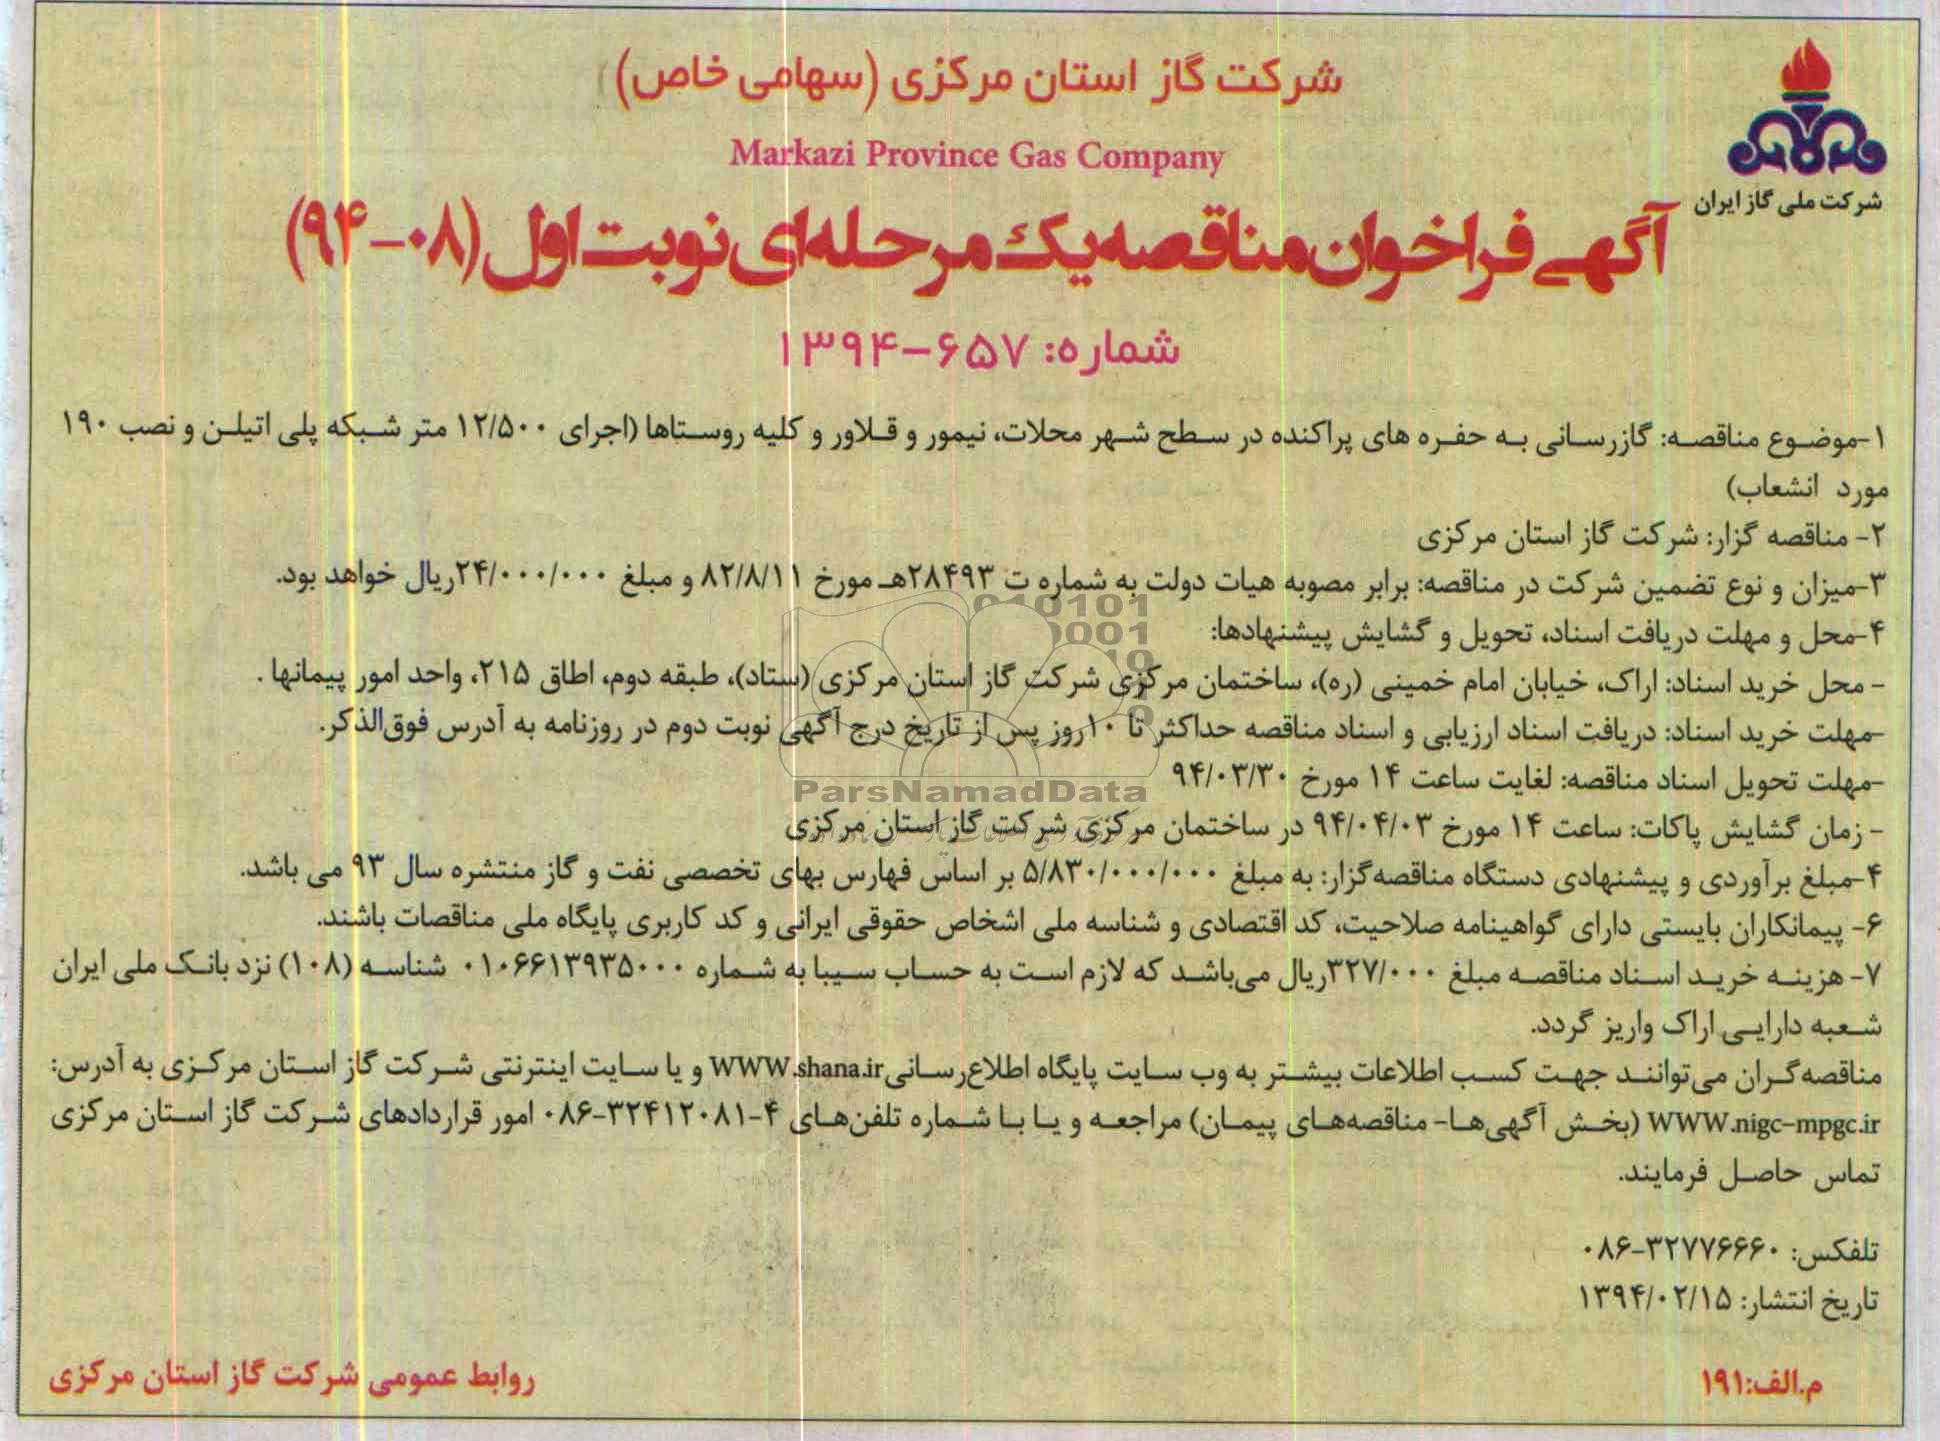 شرکت گاز استان مرکزی (سهامی خاص)
Markazi Province Gas Company
شرکت ملی گاز ایران
آگهی فراخوان مناقصه یک مرحله‌ای نوبت اول (۰۸-۹۴)
شماره: ۶۵۷-۱۳۹۴
۱-موضوع مناقصه: گازرسانی به حفره های پراکنده در سطح شهر محلات، نیمور و قلاور و کلیه روستاها (اجرای ۱۲/۵۰۰ متر شبکه پلی اتیلن و نصب ۱۹۰
مورد انشعاب)
۲- مناقصه گزار: شرکت گاز استان مرکزی
۳-میزان و نوع تضمین شرکت در مناقصه: برابر مصوبه هیات دولت به شماره ت ۲۸۴۹۳هـ مورخ ۸۲/۸/۱۱ و مبلغ ۲۴/۰۰۰/۰۰۰ریال خواهد بود.
۴-محل و مهلت دریافت اسناد، تحویل و گشایش پیشنهادها:
- محل خرید اسناد: اراک، خیابان امام خمینی (ره)، ساختمان مرکزی شرکت گاز استان مرکزی (ستاد)، طبقه دوم، اطاق ۲۱۵، واحد امور پیمانها .
-مهلت خرید اسناد: دریافت اسناد ارزیابی و اسناد مناقصه حداکثر تا ۱۰روز پس از تاریخ درج آگهی نوبت دوم در روزنامه به آدرس فوق‌الذکر.
-مهلت تحویل اسناد مناقصه: لغایت ساعت ۱۴ مورخ ۹۴/۰۳/۳۰
ParsNamadData
- زمان گشایش پاکات: ساعت ۱۴ مورخ ۹۴/۰۴/۰۳ در ساختمان مرکزی شرکت گاز استان مرکزی
۴-مبلغ برآوردی و پیشنهادی دستگاه مناقصه‌گزار: به مبلغ ۵/۸۳۰/۰۰۰/۰۰۰ بر اساس فهارس بهای تخصصی نفت و گاز منتشره سال ۹۳ می باشد.
۶- پیمانکاران بایستی دارای گواهینامه صلاحیت، کد اقتصادی و شناسه ملی اشخاص حقوقی ایرانی و کد کاربری پایگاه ملی مناقصات باشند.
۷- هزینه خرید اسناد مناقصه مبلغ ۳۲۷/۰۰۰ریال می‌باشد که لازم است به حساب سیبا به شماره ۰۱۰۶۶۱۳۹۳۵۰۰۰ شناسه (۱۰۸) نزد بانک ملی ایران
شعبه دارایی اراک واریز گردد.
مناقصه‌گران می‌توانند جهت کسب اطلاعات بیشتر به وب سایت پایگاه اطلاع‌رسانی WWW.shana.ir و یا سایت اینترنتی شرکت گاز استان مرکزی به آدرس:
WWW.nigc-mpgc.ir (بخش آگهی‌ها- مناقصه‌های پیمان) مراجعه و یا با شماره تلفن‌های ۴-۰۸۶-۳۲۴۱۲۰۸۱ امور قراردادهای شرکت گاز استان مرکزی
تماس حاصل فرمایند.
تلفکس: ۰۸۶-۳۲۷۷۶۶۶۰
تاریخ انتشار: ۱۳۹۴/۰۲/۱۵
م.الف:۱۹۱
روابط عمومی شرکت گاز استان مرکزی